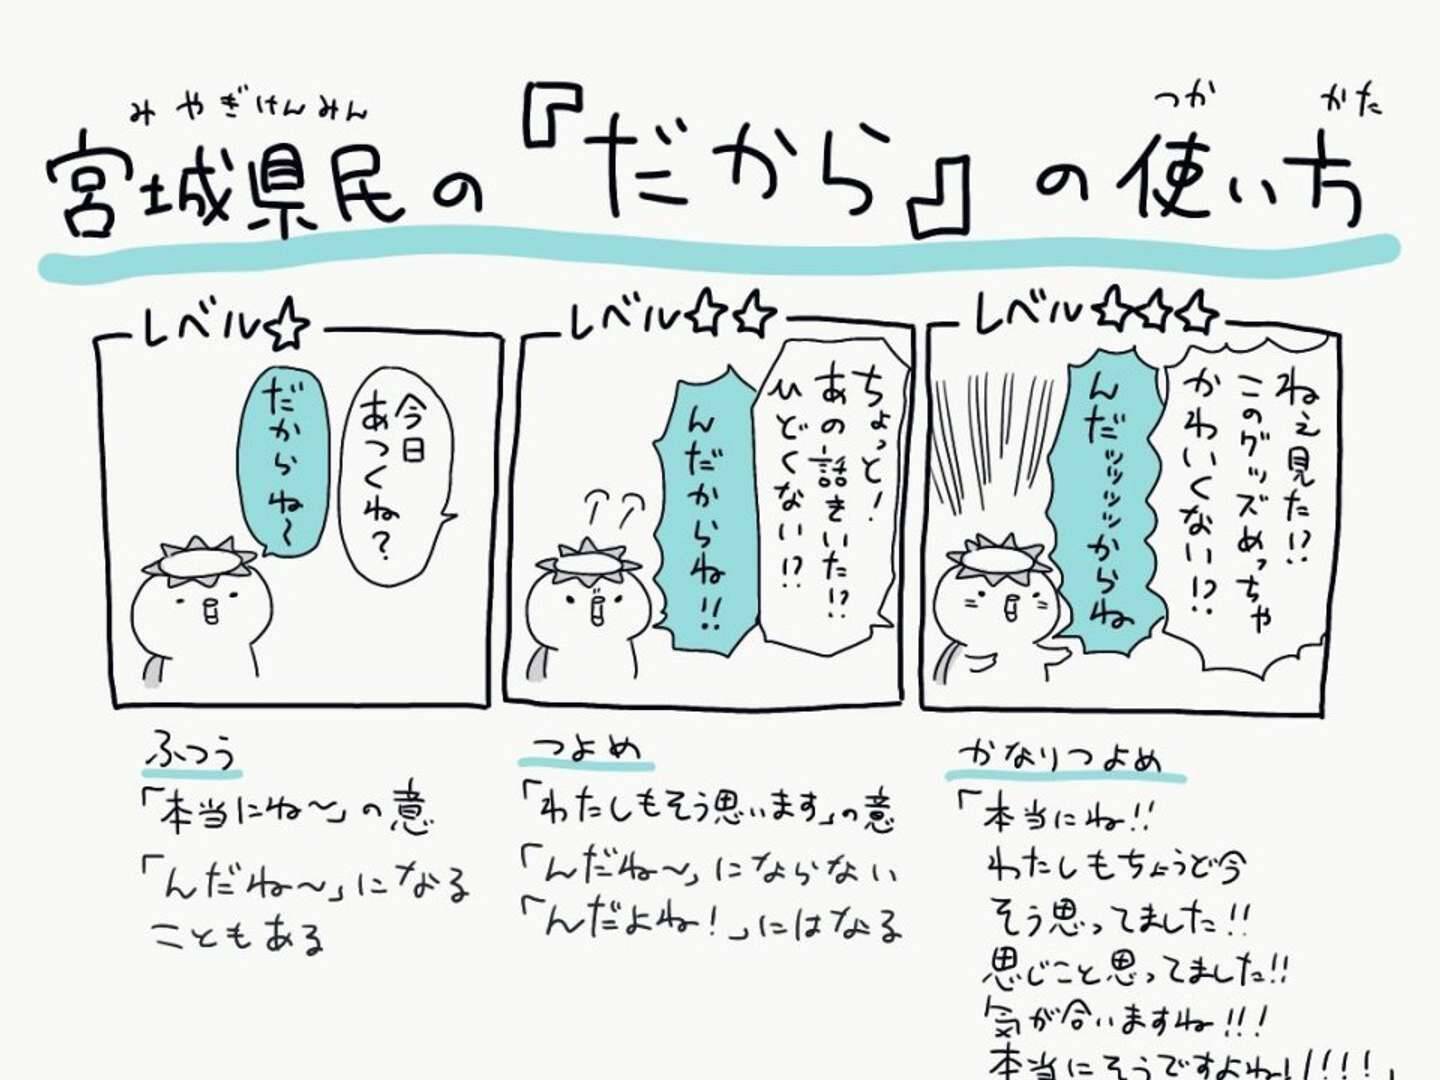 みやぎけんみん つか かた
宮城県民の『だから』の使い方
レベル☆
今日
あつくね?
だからね〜
ふつう
「本当にね〜」の意
「んだね〜」になる
こともある
レベル☆☆
ちょっと!
あの話きいた!?
ひどくない!?
んだからね!!
つよめ
「わたしもそう思います」の意
「んだね〜」にならない
「んだよね!」にはなる
レベル☆☆☆
ねぇ見た!?
このグッズめっちゃ
かわいくない!?
んだッッッッからね
かなりつよめ
「本当にね!!
わたしもちょうど今
そう思ってました!!
思じこと思ってました!!
気が合いますね!!!
本当にそうですよね!!!!!」